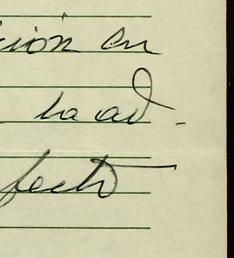 ción en
la ad-
fecto